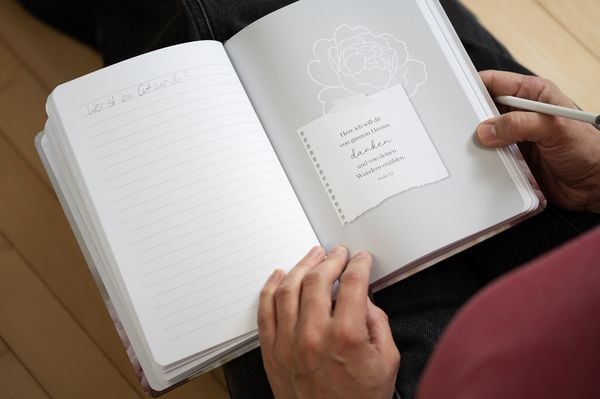 Wer ist ein Gott wie du?
Herr, ich will dir
von ganzem Herzen
danken
und von deinen
Wundern erzählen.
Psalm 9,2